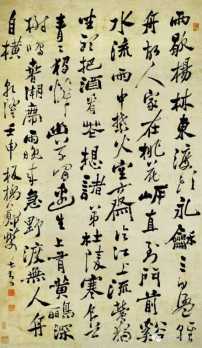 雨歇楊林東渡頭永龢三日盪輕
舟故人家在桃花岍直到門前谿
水流雨中禁火空齋冷江上流鶯獨
坐聽把酒看花想諸弟杜陵寒食草
青青獨憐幽草澗邊生上有黃鸝深
樹鳴春潮帶雨晚來急野渡無人舟
自橫 乾隆壬申 板橋鄭燮